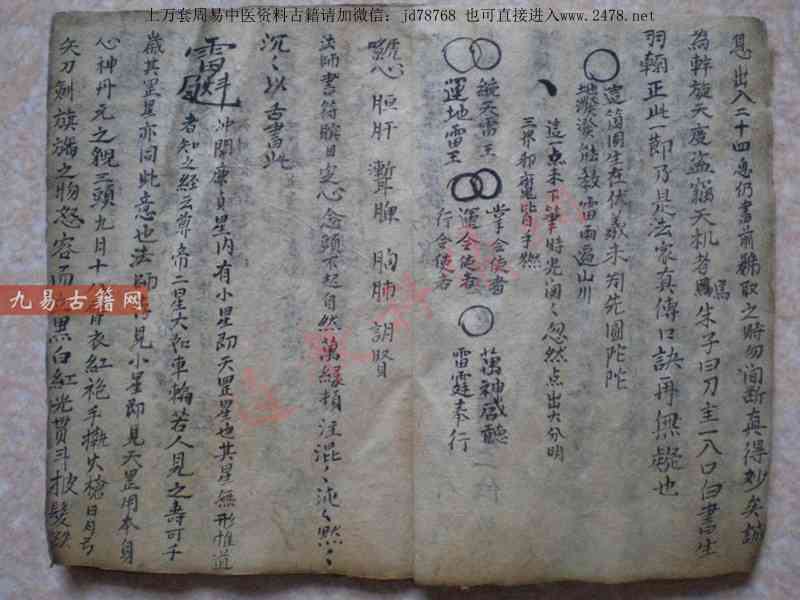 上万套周易中医资料古籍请加微信：jd78768 也可直接进入www.2478.net
息出入二十四息仍書前號取之時勿間斷真得妙矣誠
為斡旋天度盜竊天机者焉朱子曰刀圭一入口白書生
羽翰正此一節乃是法家真傳口訣再無疑也
這箇圈生在伏羲未判先圖陀陀
地潑潑能教雷雨遍山川
這一点未下筆時光闪々忽然点出大分明
三界邪魔皆手燃
統天雷王
運地雷王
掌會使者
運令使者
行令使者
萬神咸聽
雷霆奉行
心 脜 肝 胸 肺 賢
法師書符瞑目定心念頭不起自然萬緣頓注混々沌々默々
沉々以舌書此
雷 冲開廉貞星内有小星即天罡星也其星無形惟道
者知之经云尊帝二星大如車輪若人見之壽可千
歲其罡星亦同此意也法師得見小星即見天罡用本身
心神丹元之親三頭九目十六臂衣紅袍手擲火搶日月弓
矢刀劍旗幡之物怒容而 黑白紅光贯斗披髮
九易古籍网